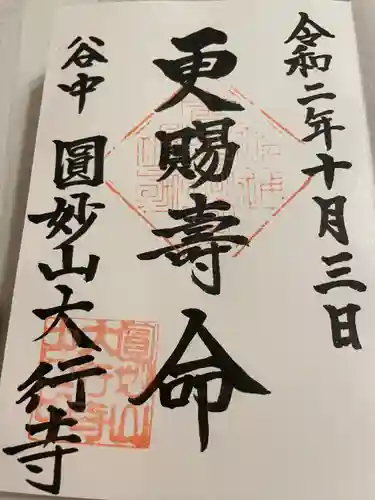 令和二年十月三日
更賜壽命
谷中
圓妙山大行寺
圓妙山
大行寺